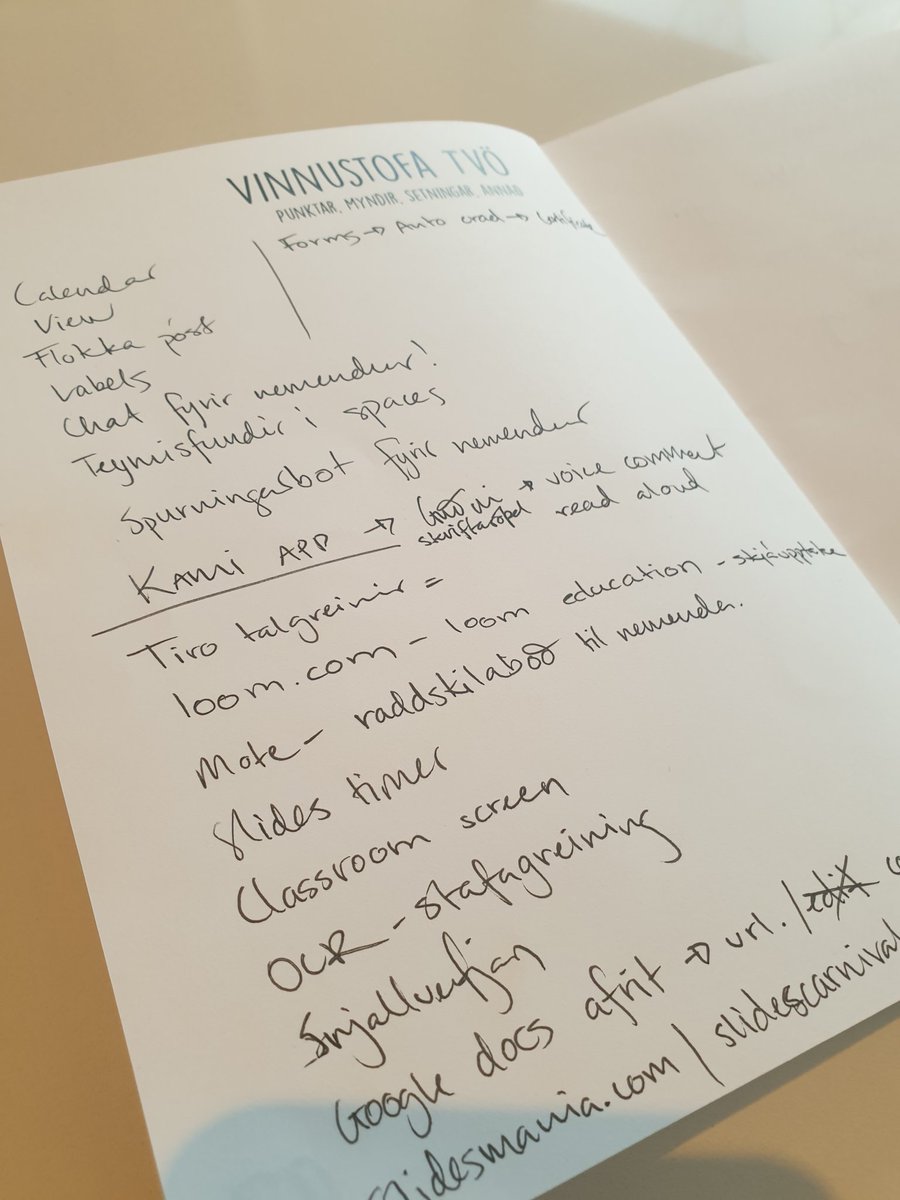 VINNUSTOFA TVÖ
PUNKTAR, MYNDIR, SETNINGAR, ANNAÐ
Forms → Auto crad →
Calendar
View
Flokka póst
Labels
Chat fyrir nemendur!
Teymisfundir í spaces
Spurningarbot fyrir nemendur
KAMI APP → → voice comment
read aloud
Tiro talgreinir =
loom.com - loom education - skjáupptaka
Mote - raddskilaboð til nemenda.
Slides timer
Classroom screen
OCR - stafagreining
Snjallverfjan
Google docs afrit → url. / edit
slidesmania.com / slidescarnival